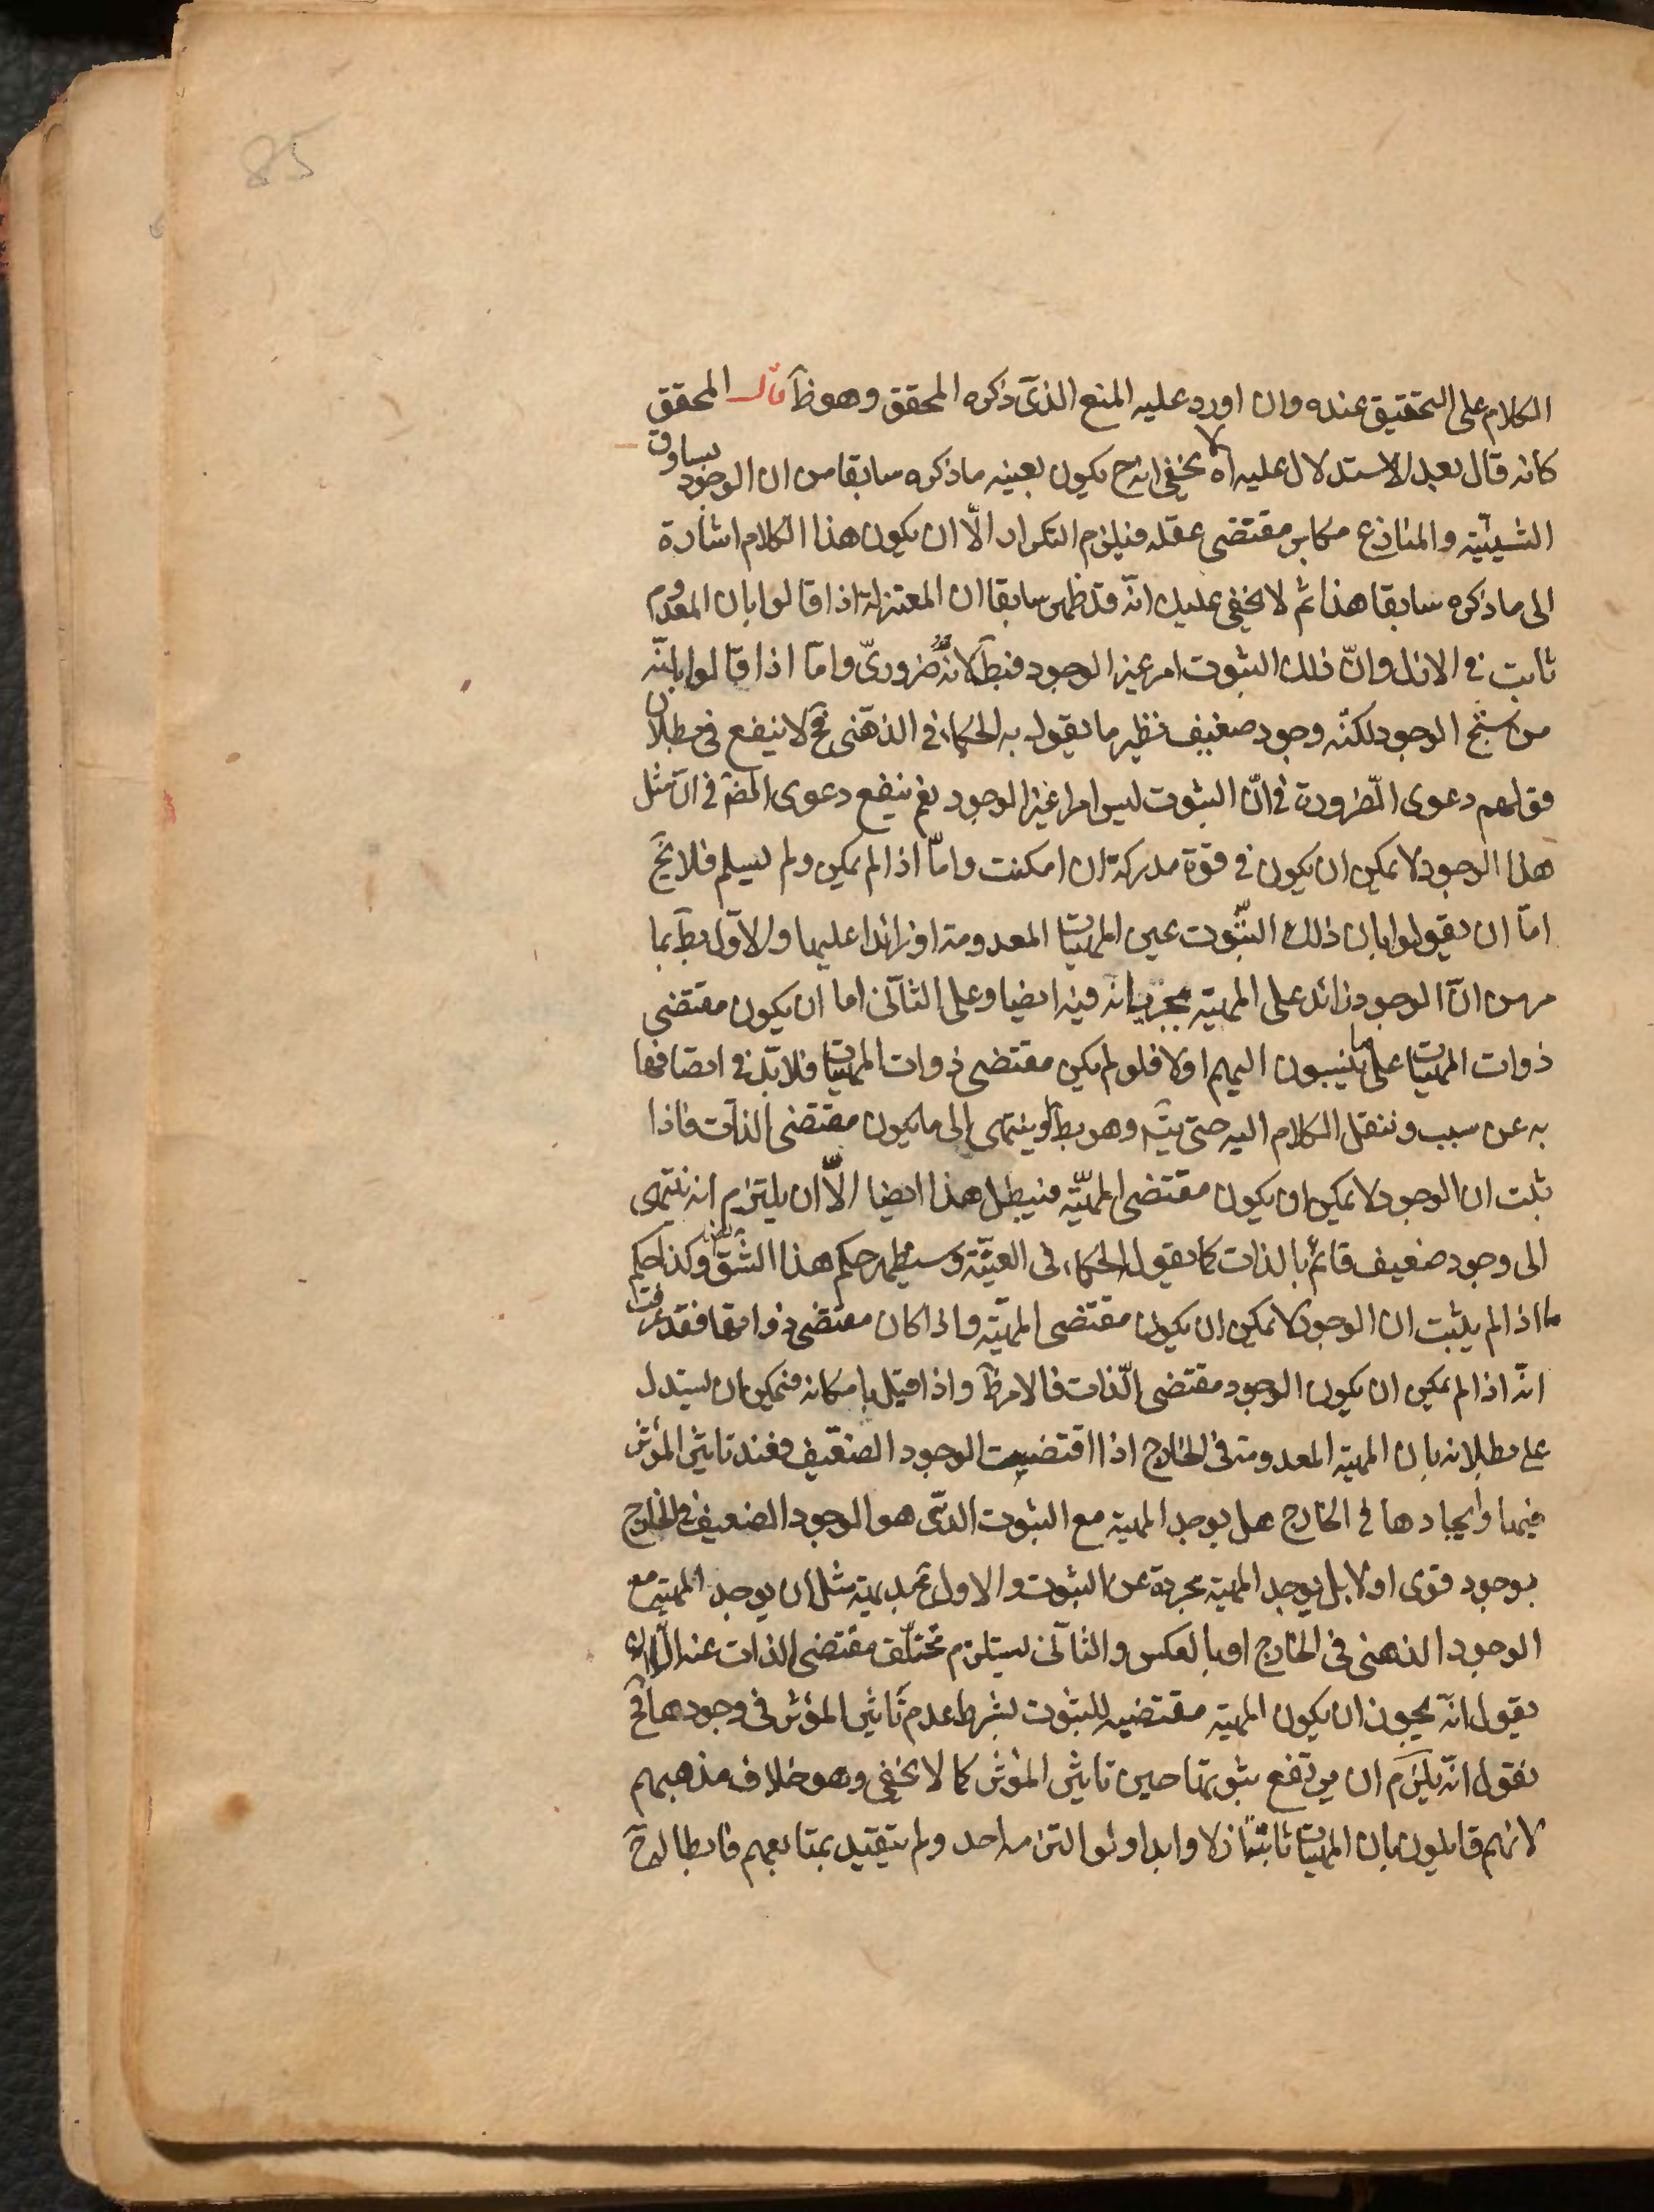 85
الكلام على التحقيق عنده وان اورد عليه المنع الذى ذكره المحقق وهو ظ قال المحقق
كانه قال بعد الاستدلال عليه اه لا يخفى انه ح يكون بعينه ما ذكره سابقا من ان الوجود يساوق
الشيئية والمنازع مكابر مقتضى عقله فيلزم التكرار الّا ان يكون هذا الكلام اشارة
الى ما ذكره سابقا هذا ثم لا يخفى عليك انّه قد ظهر سابقا ان المعتزلة اذا قالوا بان المعدوم
ثابت فى الازل وانّ ذلك الثبوت امر غير الوجود فبطلانه ضرورىّ وامّا اذا قالوا بانّه
من سنخ الوجود لكنّه وجود ضعيف نظير ما يقول به الحكماء فى الذهنى فح لا ينفع فى بطلان
قولهم دعوى الضّرورة فى انّ الثبوت ليس امرا غير الوجود نعم ينفع دعوى الضرة فى انّ مثل
هذا الوجود لا يمكن ان يكون فى قوّة مدركة ان امكنت وامّا اذا لم يمكن ولم يسلم فلا يخ
امّا ان يقولوا بان ذلك الثّبوت عين المهيّات المعدومة او زائدا عليها والاوّل بط بما
مر من انّ الوجود زائد على المهيّة بجريانه فيه ايضا وعلى الثانى اما ان يكون مقتضى
ذوات المهيّات على ما ينسبون اليهم اولا فلو لم يكن مقتضى ذوات المهيّات فلا بدّ فى اتصافها
به عن سبب وننقل الكلام اليه حتى يتم وهو بط او ينتهى الى ما يكون مقتضى الذات فاذا
ثبت ان الوجود لا يمكن ان يكون مقتضى المهيّة فيبطل هذا ايضا الّا ان يلتزم انه ينتهى
الى وجود ضعيف قائم بالذات كما يقول الحكماء فى العينيّة وسيظهر حكم هذا الشقّ وكذا حكم
ما اذا لم يثبت ان الوجود لا يمكن ان يكون مقتضى المهيّة واذا كان مقتضى ذواتها فقد عرفت
انّه اذا لم يمكن ان يكون الوجود مقتضى الذّات فالامر ظ واذا قيل بامكانه فيمكن ان يستدل
على بطلانه بان المهية المعدومة فى الخارج اذا اقتضيت الوجود الضعيف فعند تاثير المؤثر
فيها وايجادها فى الخارج هل يوجد المهية مع الثبوت الذى هو الوجود الضعيف فى الخارج
بوجود قوى اولا بل يوجد المهية مجردة عن الثبوت والاول مثل ان يوجد المهية مع
الوجود الذهنى فى الخارج او بالعكس والثانى يستلزم تخلّف مقتضى الذات عنه الّا ان
يقول انّه يجوز ان يكون المهية مقتضيه للثبوت بشرط عدم تاثير المؤثر فى وجودها فح
نقول انّه يلزم ان يرتفع ثبوتها حين تاثير المؤثر كما لا يخفى وهو خلاف مذهبهم
لانهم قايلون بان المهيّات ثابتة ازلا وابدا ولو التزمه احد ولم يتقيد بمتابعهم فابطاله ح